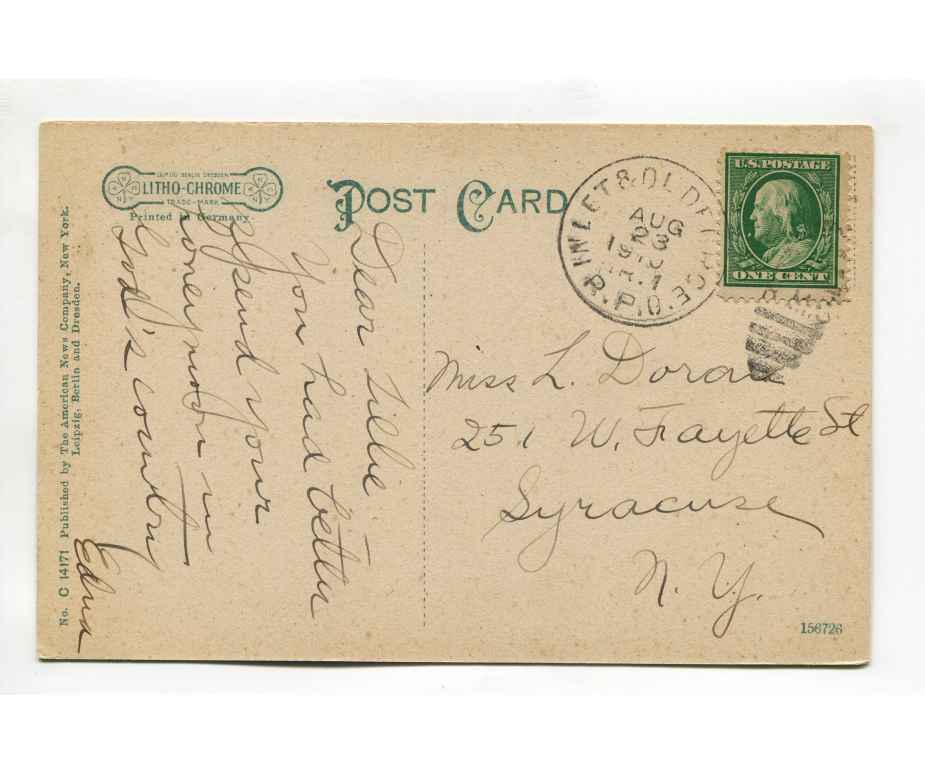 LEIPZIG BERLIN DRESDEN
LITHO-CHROME
TRADE-MARK
Printed in Germany.
POST CARD
INLET & OLD FORGE
R.P.O.
AUG
23
TR.1
U.S. POSTAGE
ONE CENT
Dear Lillie
You had better
spend your
honeymoon in
God's country
Edna
Miss L. Doran
251 W. Fayette St
Syracuse
N. Y.
No. C 14171 Published by The American News Company, New York.
Leipzig, Berlin and Dresden.
156726